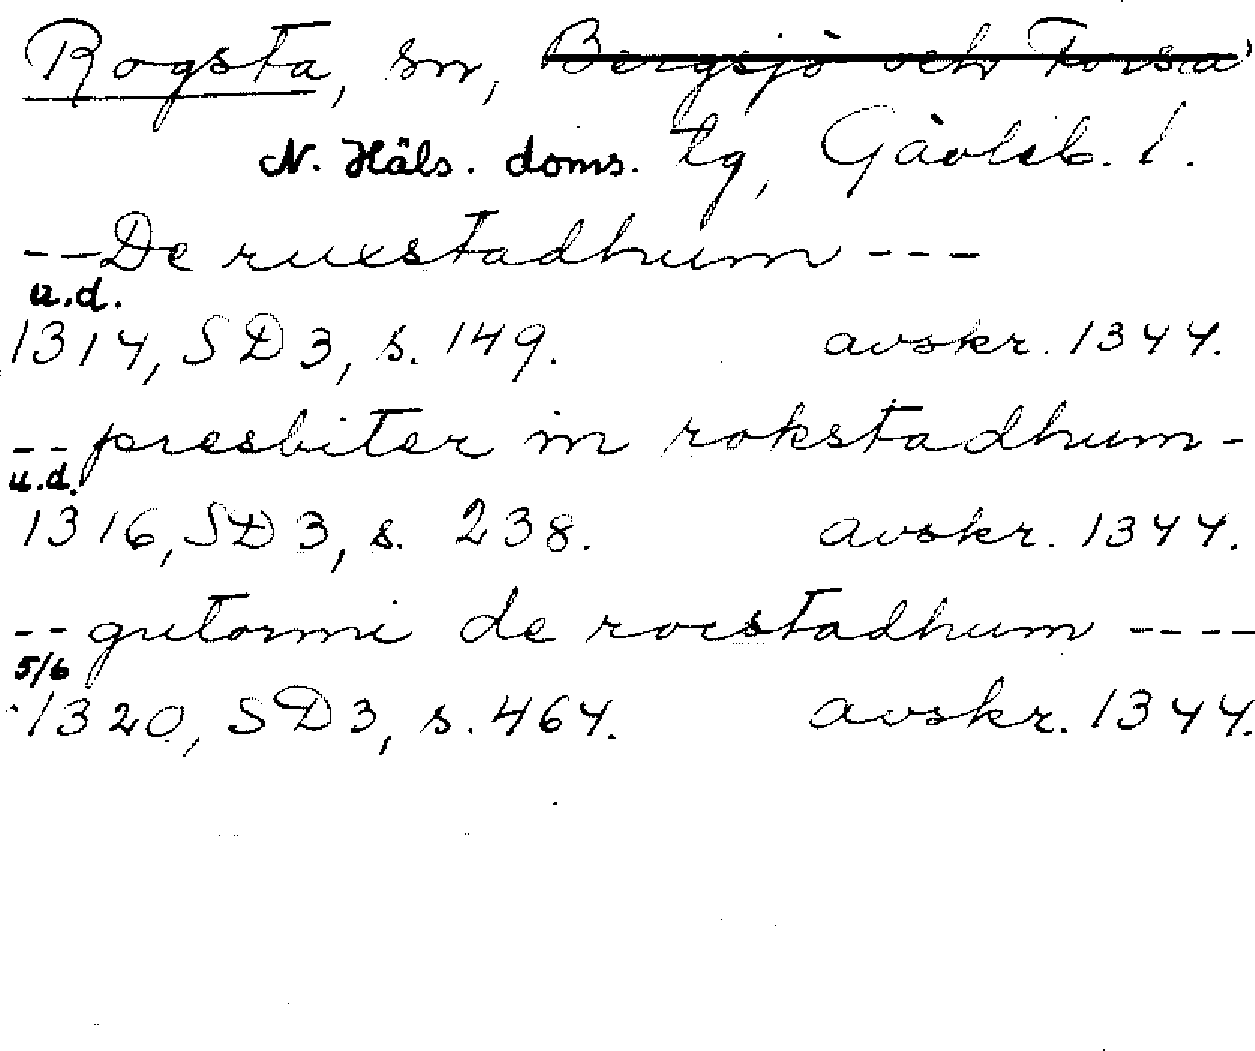 Rogsta, sn, Bergsjö och Forsa
N. Häls. doms. tg, Gävleb. l.
--De ruxstadhum ---
u.d.
1314, SD 3, s. 149. avskr. 1344.
--presbiter in rokstadhum-
u.d.
1316, SD 3, s. 238. avskr. 1344.
--gutormi de rocstadhum ----
5/6
1320, SD 3, s. 464. avskr. 1344.